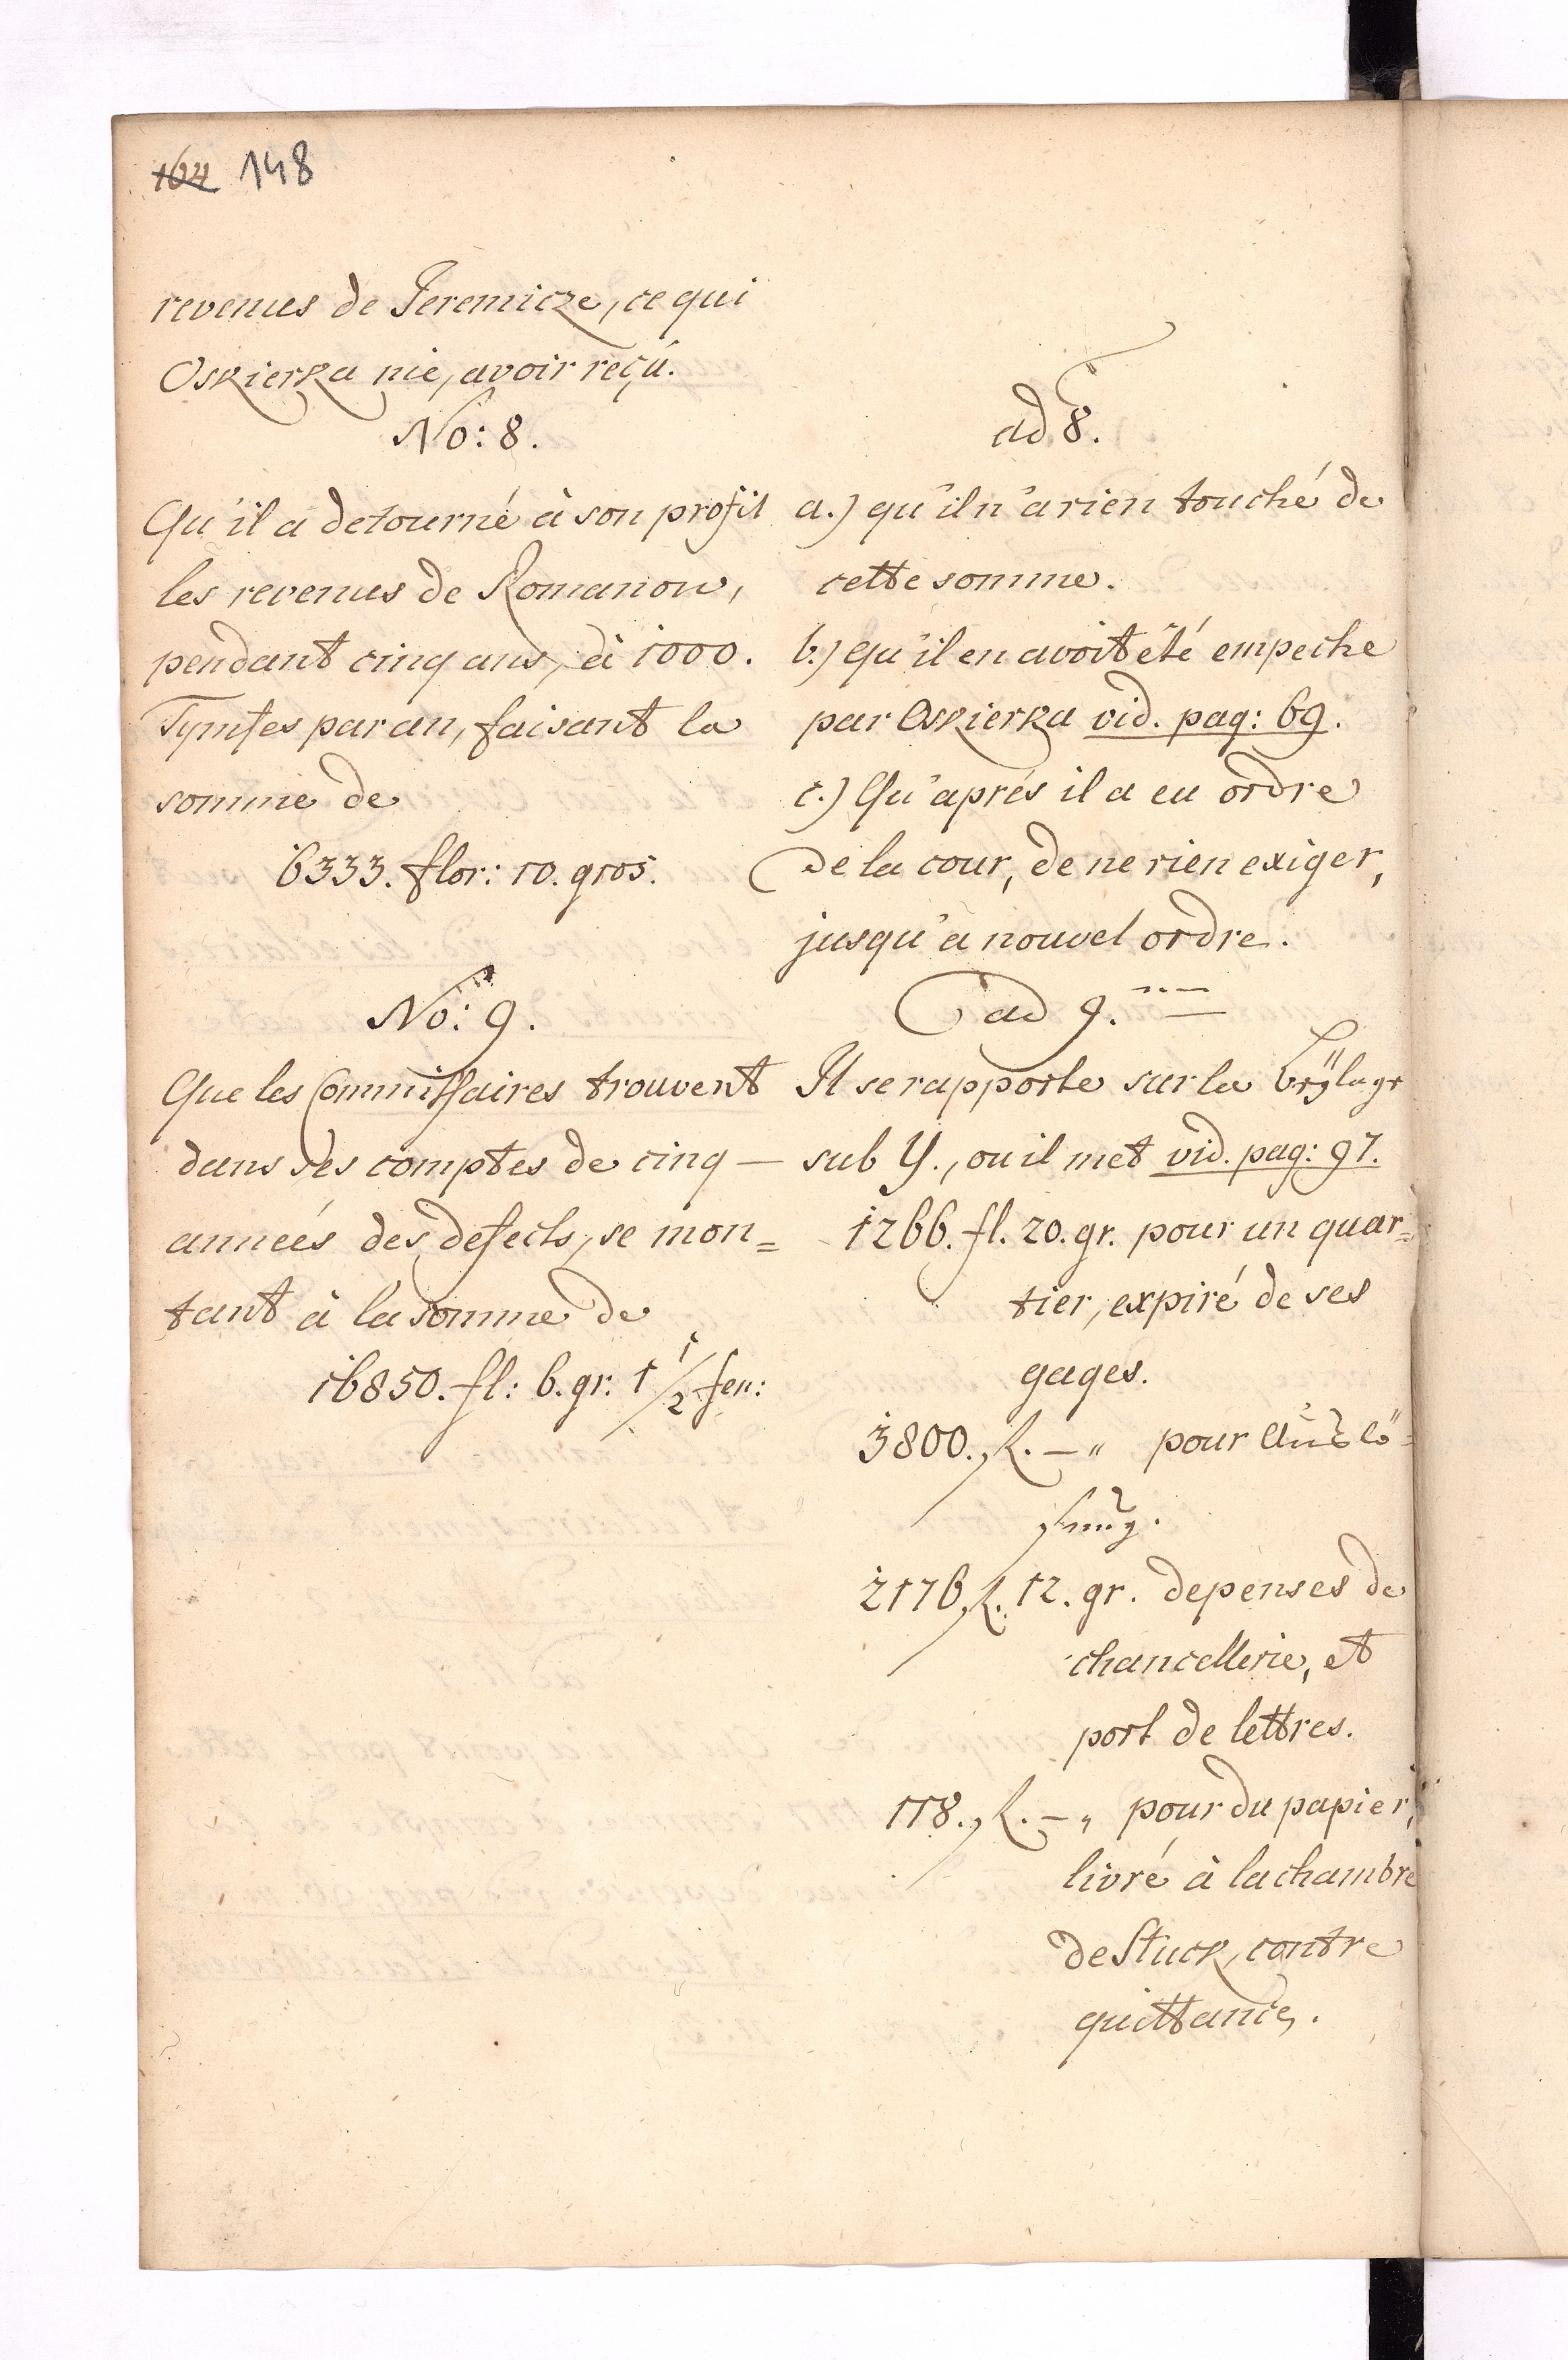 164 148
revenus de Jeremicze, ce qui
Oskierka nie, avoir reçû.
No: 8.
Qu'il a detourné à son profit
les revenus de Romanow,
pendant cinq ans, à 1000.
Tymfes par an, faisant la
somme de
6333. flor: 10. gros.
No: 9.
Que les Commissaires trouvent
dans ses comptes de cinq —
anneés des defects, se mon=
tant à la somme de
16850. fl: 6. gr: 1 1/2 fen:
ad 8.
a.) qu'il n'a rien touché de
cette somme.
b.) qu'il en avoit été empeche
par Oskierka vid. pag: 69.
c.) Qu'aprés il a eu ordre
de la cour, de ne rien exiger,
jusqu'à nouvel ordre.
ad 9.
Il se rapporte sur la Beÿlage
sub Y., ou il met vid. pag: 97.
1266. fl. 20. gr. pour un quar=
tier, expiré de ses
gages.
3800. fl. — " pour Auslö=
sung.
2176. fl. 12. gr. depenses de
chancellerie, et
port de lettres.
118. fl. — " pour du papier,
livré à la chambre
de Stuck, contre
quittance.